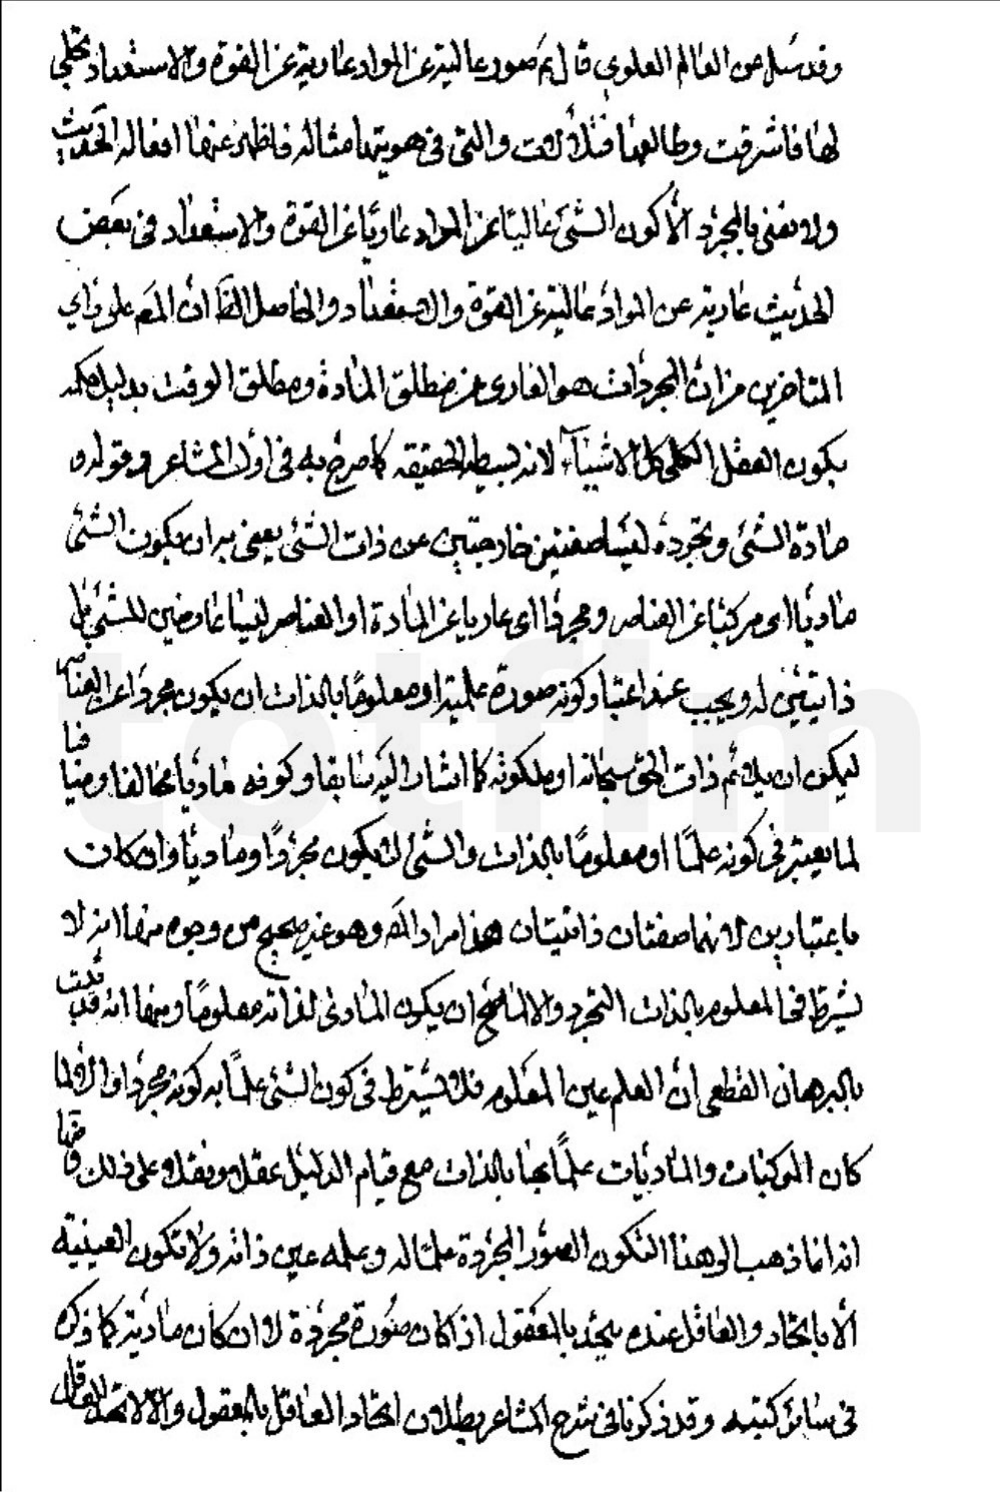 وقد سئل عن العالم العلوي قال ع صور عالية عن المواد عارية عن القوة والاستعداد تجلى
لها فاشرقت وطالعها فتلألأت والقى في هويتها مثاله فاظهر عنها افعاله الحديث
ولا نعنى بالمجرد الا كون الشئ عاليا عن المواد عاريا عن القوة والاستعداد في بعض
الحديث عارية عن المواد عالية عن القوة والاستعداد والحاصل الظ ان المص على راي
المتاخرين من ان المجردات هو العارى عن مطلق المادة ومطلق الوقت بدليل حكمه
بكون العقل الكلي كل الاشياء لانه بسيط الحقيقه كما صرح به في اول المشاعر وقوله و
مادة الشئ وتجرده ليسا صفتين خارجتين عن ذات الشئ يعنى به ان يكون الشئ
ماديا اى مركبا عن العناصر ومجردا اى عاريا عن المادة او العناصر ليسا عارضين للشئ بل
ذاتيتين له ويجب عند اعتبار كونه صورة علمية او معلوما بالذات ان يكون مجردا عن العناصر
ليمكن ان يلائم ذات الحق سبحانه او ملكوته كما اشار اليه سابقا وكونه ماديا مخالفا ومنافيا
لما يعتبر في كونه علما او معلوما بالذات والشئ لا يكون مجردا وماديا وان كان
باعتبارين لانهما صفتان ذاتيتان هذا مراد المص وهو غير صحيح من وجوه منها انه لا
يشترط في المعلوم بالذات التجرد والا لما صح ان يكون المادى لذاته معلوما ومنها انه قد ثبت
بالبرهان القطعى ان العلم عين المعلوم فلا يشترط في كون الشئ علما به كونه مجردا والا لما
كان المركبات والماديات علما بها بالذات مع قيام الدليل عقلا ونقلا على ذلك ومنها
انه انما ذهب الى هذا لتكون الصور المجردة علما له وعلمه عين ذاته ولا تكون العينية
الا بالاتحاد والعاقل عنده يتحد بالمعقول اذا كان صورة مجردة لا ان كان مادية كما ذكره
في سائر كتبه وقد ذكرنا في شرح المشاعر بطلان اتحاد العاقل بالمعقول والا لاتحد العاقل